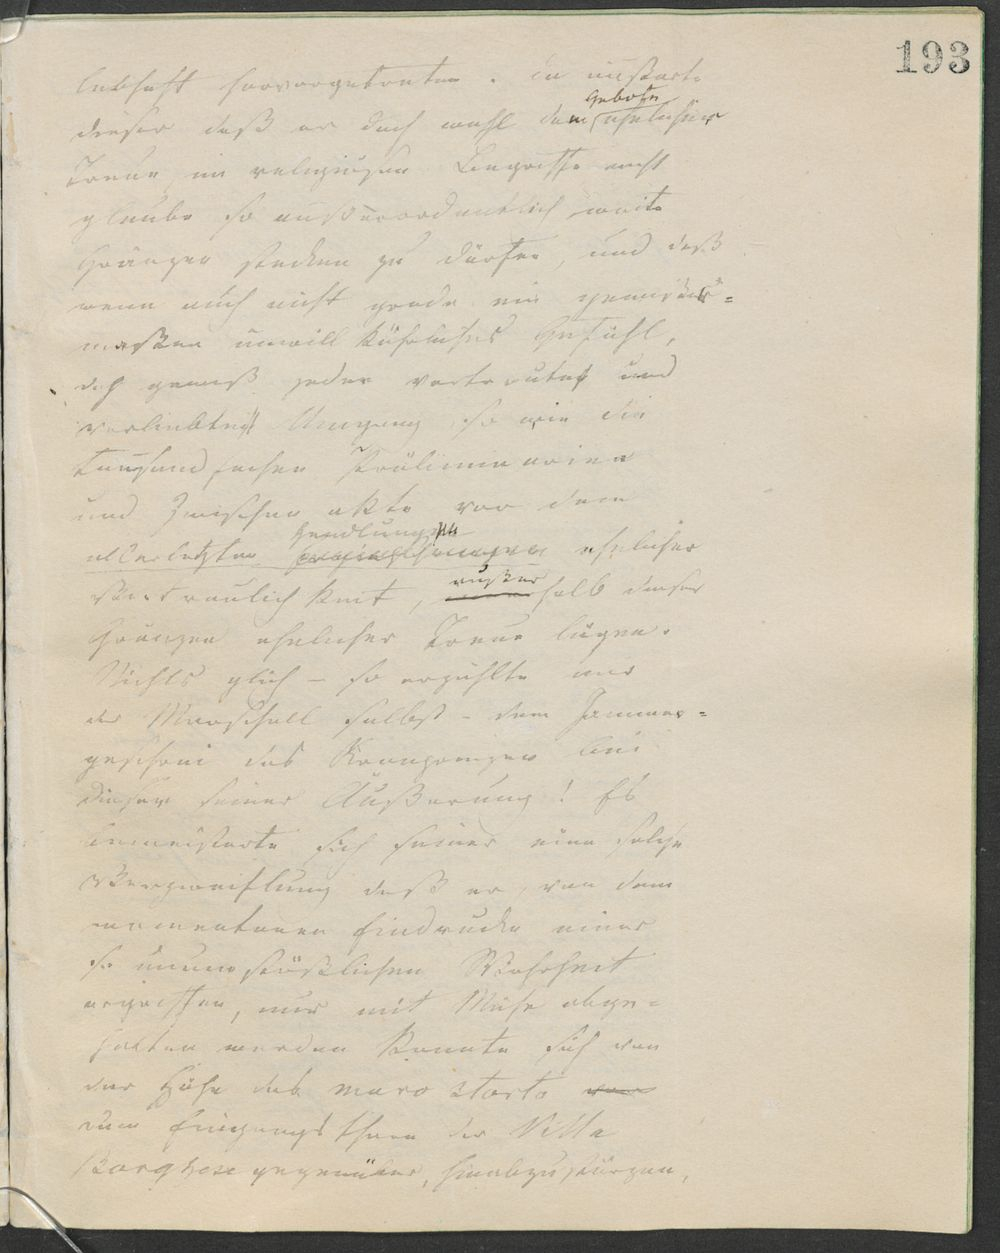 193
lebhaft hervorgetreten. Da äußerte
dieser daß er doch wohl dem Gebote ehelicher
Treue im religiösen Begriffe nicht
glaube so außerordentlich weite
Gränzen stecken zu dürfen, und daß
wenn auch nicht grade ein gewisser=
maßen unwillkührliches Gefühl,
doch gewiß jeder vertrauter und
verliebter Umgang, so wie die
tausendfachen Präliminarien
und Zwischenakte vor dem
allerletzten Handlungen ehelicher
Vertraulichkeit, außerhalb dieser
Gränzen ehelicher Treue lägen.
Nichts glich – so erzählte mir
der Marschall selbst – dem Jammer=
geschrei des Kronprinzen bei
dieser seiner Äußerung! Es
bemeisterte sich seiner eine solche
Verzweiflung daß er, von dem
momentanen Eindrucke einer
so unumstößlichen Wahrheit
ergriffen, nur mit Mühe abge=
halten werden konnte sich von
der Höhe des muro storto
dem Eingangsthore der Villa
Borghese gegenüber, hinabzustürzen,